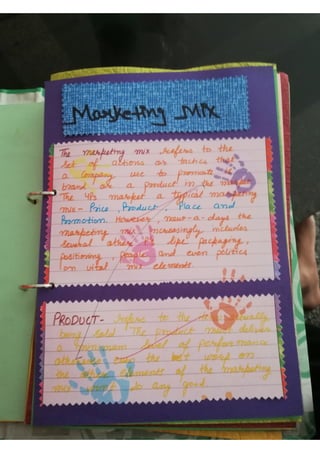 Marketing Mix
The marketing mix refers to the
set of actions or tactics that
a company use to promote it
brand are a product in the
The 4Ps market a typical marketing
mix - Price, Product, Place and
Promotion. However, now-a-days the
marketing mix increasingly includes
several other like packaging,
positioning, people and even politics
on vital mix elements.
PRODUCT- refers to the
being sold. The product must deliver
a minimum level of performance
even the best work on
the other elements of the marketing
mix any good